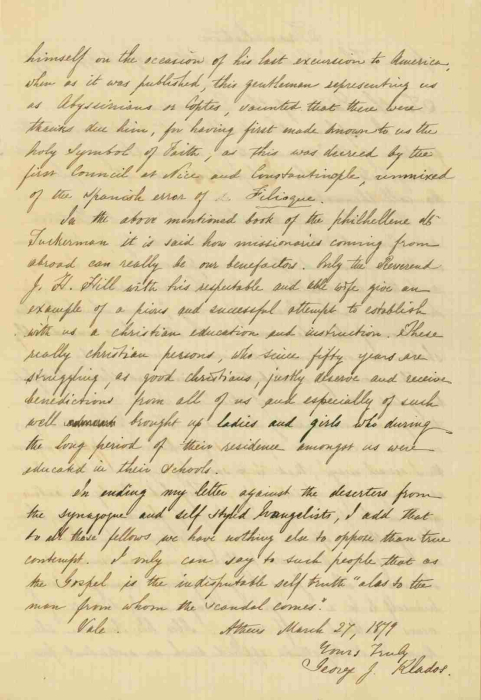 himself on the occasion of his last excursion to America,
when as it was published, this gentleman representing us
as Abyssinians or Coptes, vaunted that there were
thanks due him, for having first made known to us the
holy Symbol of Faith, as this was decreed by the
first Council at Nice and Constantinople, unmixed
of the Spanish error of Filioque.
In the above mentioned book of the philhellene
Tuckerman it is said how missionaries coming from
abroad can really be our benefactors. Only the Reverend
J. H. Hill with his reputable and able wife give an
example of a pious and successful attempt to establish
with us a Christian education and instruction. These
really christian persons, who since fifty years are
struggling, as good christians, justly deserve and receive
benedictions from all of us and especially of such
well brought up ladies and girls who during
the long period of their residence amongst us were
educated in their schools.
In ending my letter against the deserters from
the synagogue and self styled Evangelists, I add that
to all those fellows we have nothing else to oppose than true
contempt. I only can say to such people that as
the Gospel is the indisputable self truth "alas to the
man from whom the scandal comes."
Vale. Athens March 27, 1879
Yours Truly
George J. Klados.